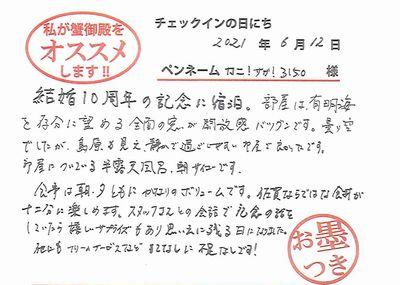 私が蟹御殿を
オススメ
します!!
チェックインの日にち
2021 年 6 月 12 日
ペンネーム カニ!サガ!3150 様
結婚10周年の記念に宿泊。部屋は有明海
を存分に望める全面の窓が開放感バツグンです。曇り空
でしたが、島原も見え、静かで過ごしやすい部屋で良かったです。
部屋についている半露天風呂、朝サイコーです。
食事は朝・夕ともにかなりのボリュームです。佐賀ならではな食材が
十二分に楽しめます。スタッフさんとの会話で記念の話を
していたら嬉しいサプライズもあり思い出に残る日になりました。
他にもフリーサービスなど おもてなしに不足なしです!
お墨
つき